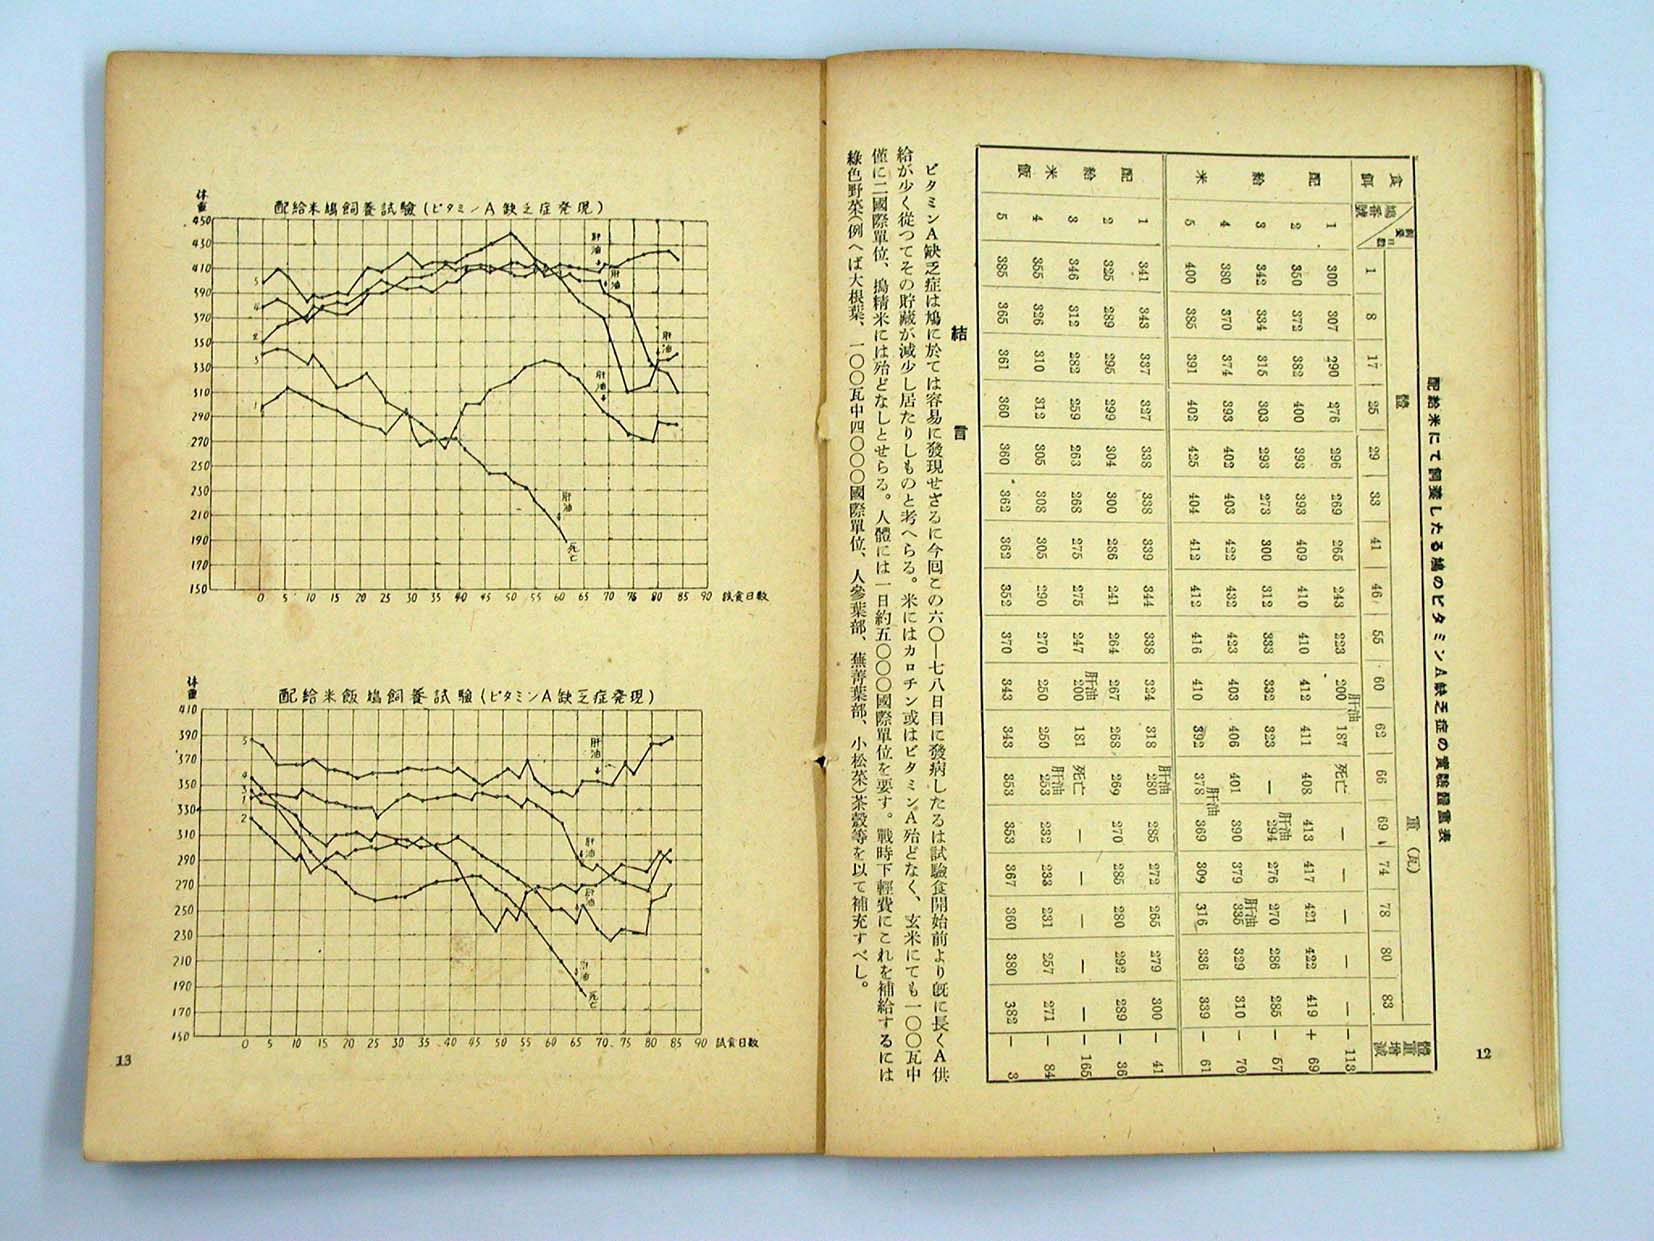 12
配給米にて飼養したる鳩のビタミンA缺乏症の實驗體重表
食餌 鳩番號 飼養日數 體重(瓦) 體重增減
1 8 17 25 29 33 41 46 55 60 62 66 69 74 78 80 83
配粉米
1 300 307 290 276 296 269 265 243 223 肝油200 187 死亡 — — — — — −113
2 350 372 382 400 393 393 409 410 410 412 411 408 413 417 421 422 419 +69
3 342 334 315 303 293 273 300 312 333 332 323 — 肝油294 276 270 286 285 −57
4 380 370 374 393 402 403 422 432 423 403 406 401 390 379 肝油335 329 310 −70
5 400 385 391 402 425 404 412 412 416 410 392 肝油378 369 309 316 336 339 −61
配粉米飯
1 341 343 337 327 338 338 339 344 338 324 318 肝油280 285 272 265 279 300 −41
2 325 289 295 299 304 300 286 241 264 267 268 269 270 285 280 292 289 −36
3 346 312 282 259 263 268 275 275 247 肝油200 181 死亡 — — — — — −165
4 355 326 310 312 305 308 305 290 270 250 250 肝油253 232 233 231 257 271 −84
5 385 365 361 360 360 362 362 352 370 343 343 353 353 367 360 380 382 −3
結言
ビタミンA缺乏症は鳩に於ては容易に發現せざるに今囘この六〇—七八日目に發病したるは試驗食開始前より既に長くA供
給が少く從つてその貯藏が減少し居たりしものと考へらる。米にはカロチン或はビタミンA殆どなく、玄米にても一〇〇瓦中
僅に二國際單位、搗精米には殆どなしとせらる。人體には一日約五〇〇〇國際單位を要す。戰時下輕費にこれを補給するには
綠色野菜(例へば大根葉、一〇〇瓦中四〇〇〇國際單位、人參葉部、蕪菁葉部、小松菜)茶殼等を以て補充すべし。
体重
配給米鳩飼養試驗(ビタミンA缺乏症発現)
450
430
410
390
370
350
330
310
290
270
250
230
210
190
170
150
5
4
2
3
1
肝油
肝油
肝油
肝油
肝油
死亡
0 5 10 15 20 25 30 35 40 45 50 55 60 65 70 75 80 85 90 試食日数
体重
配給米飯鳩飼養試驗(ビタミンA缺乏症発現)
410
390
370
350
330
310
290
270
250
230
210
190
170
150
5
4
3
1
2
肝油
肝油
肝油
肝油
死亡
0 5 10 15 20 25 30 35 40 45 50 55 60 65 70 75 80 85 90 試食日数
13